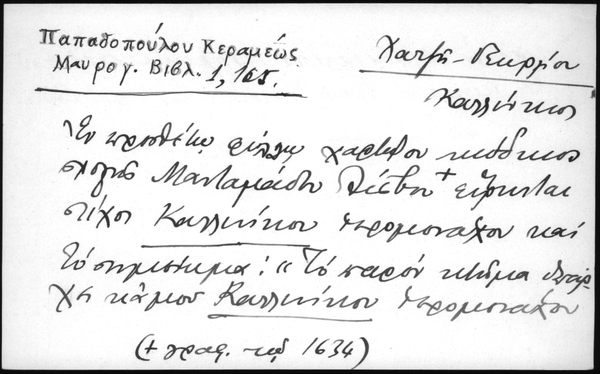 Παπαδοπούλου Κεραμέως
Μαυρογ. Βιβλ. 1, 165.
Χατζῆ-
Καλλίνικος
Ἐν προσθέτῳ φύλλῳ χαρτῴου κώδικος
σχολῆς Μανταμάδου Λέσβου + εὕρηνται
στίχοι Καλλινίκου ἱερομονάχου καὶ
τὸ σημείωμα: "Τὸ παρὸν κτῆμα ὑπάρ
χει κἀμοῦ Καλλινίκου ἱερομονάχου
(+ γραφ. τῷ 1634)